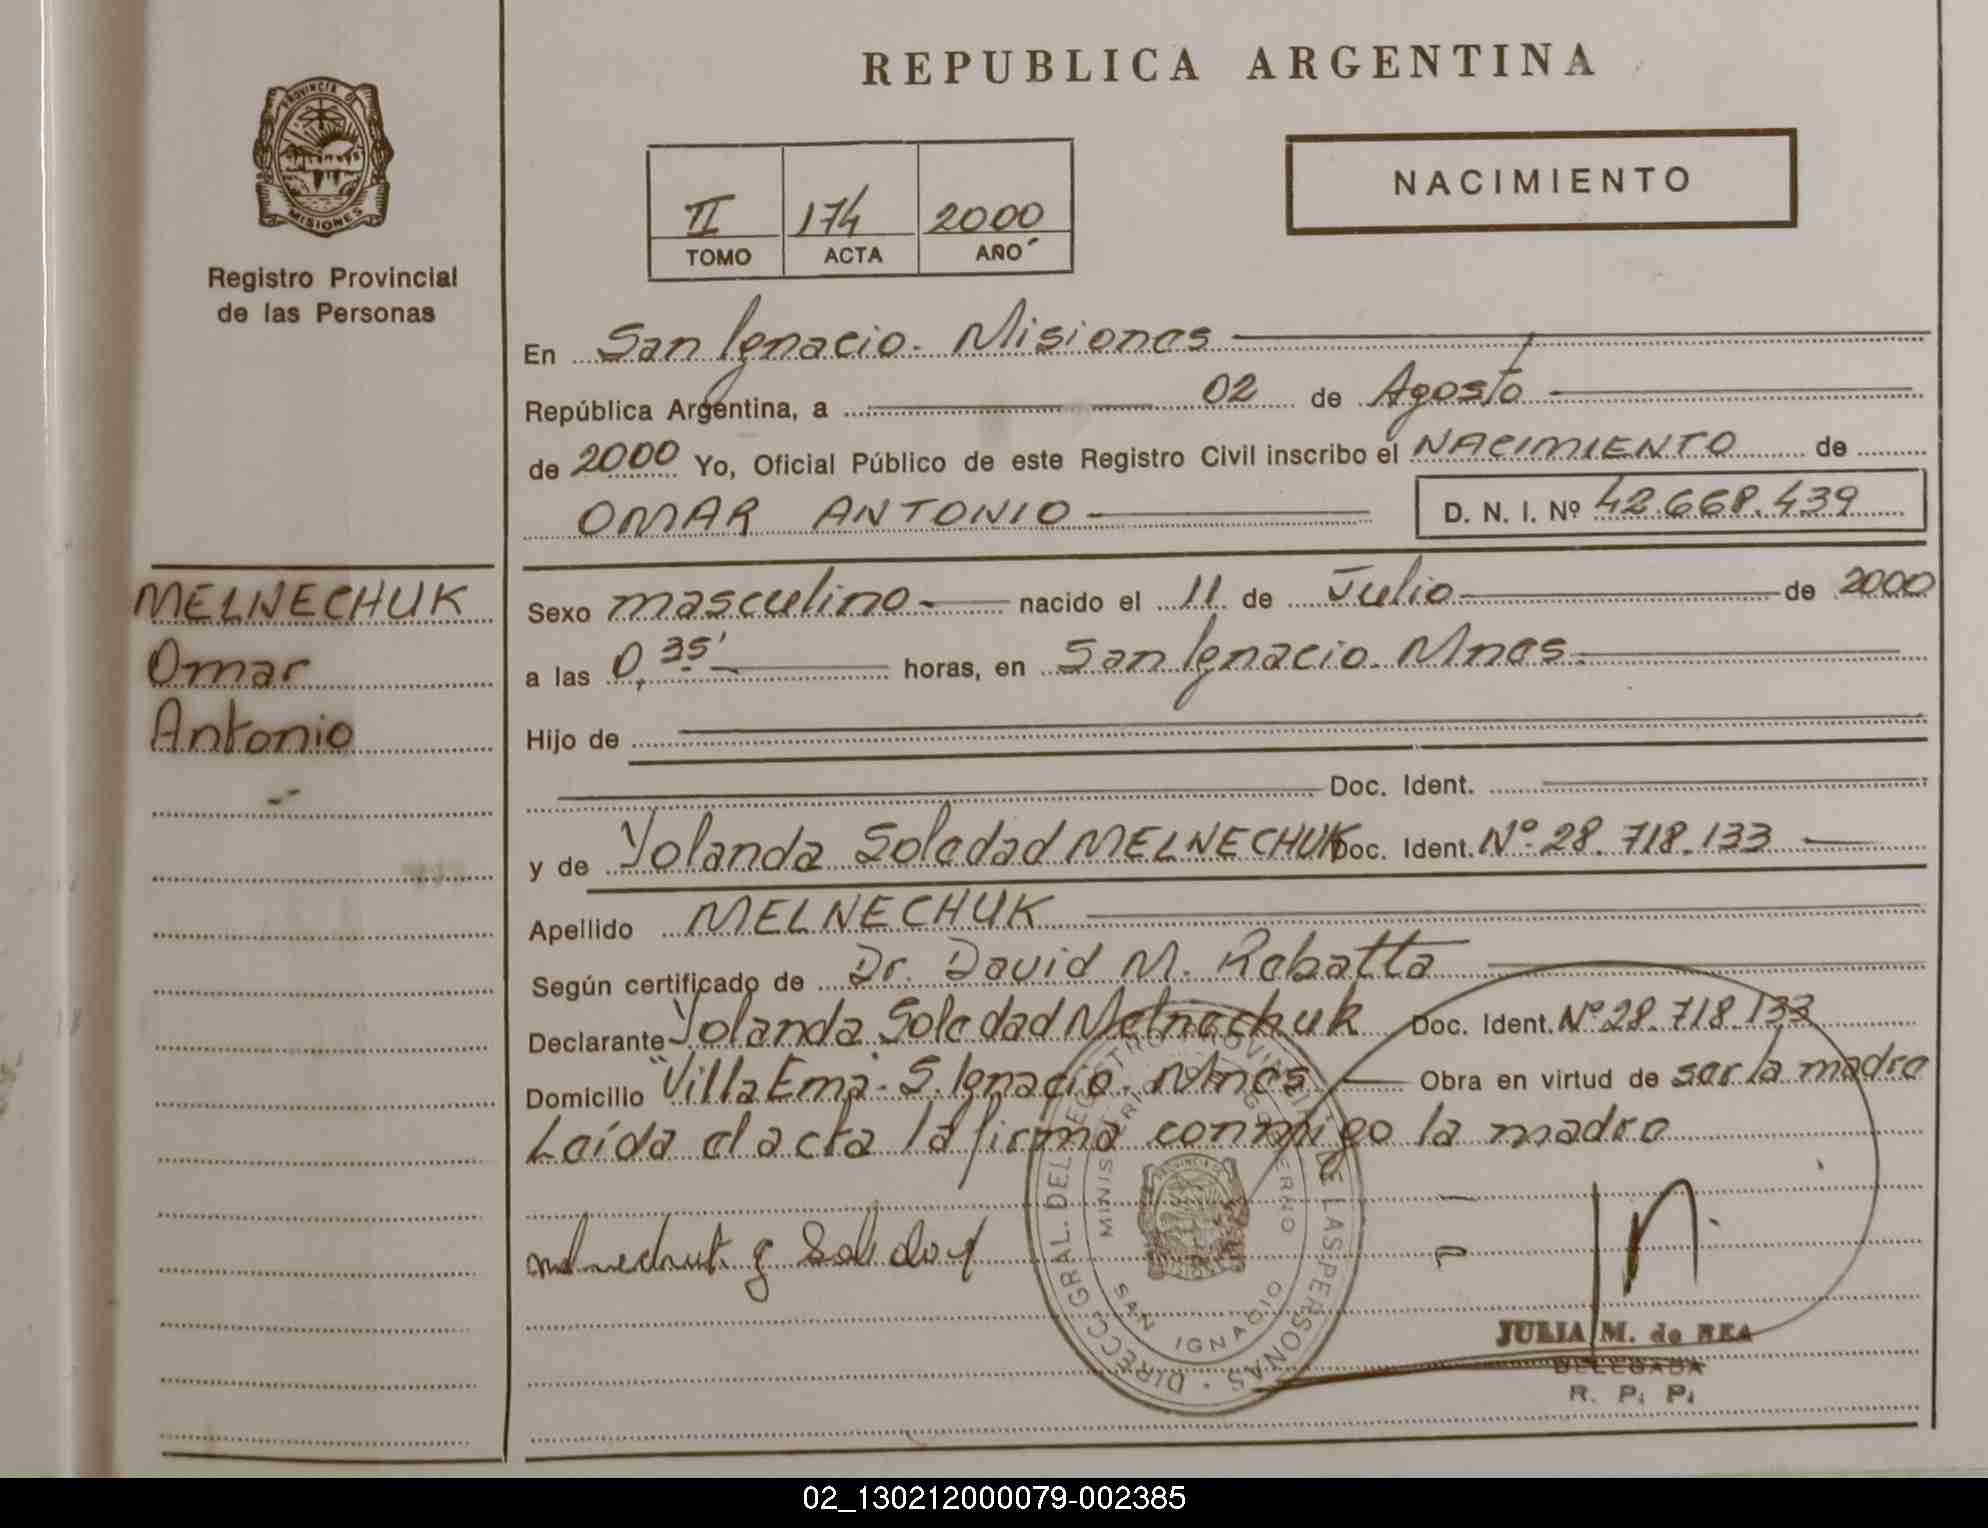 REPUBLICA ARGENTINA
PROVINCIA DE
MISIONES
Registro Provincial
de las Personas
NACIMIENTO
II 174 2000
TOMO ACTA AÑO
En San Ignacio. Misiones
República Argentina, a 02 de Agosto
de 2000 Yo, Oficial Público de este Registro Civil inscribo el NACIMIENTO de
OMAR ANTONIO D. N. I. Nº 42.668.439
MELNECHUK
Omar
Antonio
Sexo masculino nacido el 11 de Julio de 2000
a las 0,35' horas, en San Ignacio. Mnes.
Hijo de
Doc. Ident.
y de Yolanda Soledad MELNECHUK Doc. Ident. Nº 28.718.133
Apellido MELNECHUK
Según certificado de Dr. David M. Rebatta
Declarante Yolanda Soledad Melnechuk Doc. Ident. Nº 28.718.133
Domicilio Villa Ema. S. Ignacio. Mnes Obra en virtud de ser la madre
Leída el acta la firma conmigo la madre
melnechuk y Soledad
DIRECC. GRAL. DEL REGISTRO PROVINCIAL DE LAS PERSONAS
MINISTERIO GOBIERNO
SAN IGNACIO
JULIA M. de REA
DELEGADA
R. P. P.
02_130212000079-002385